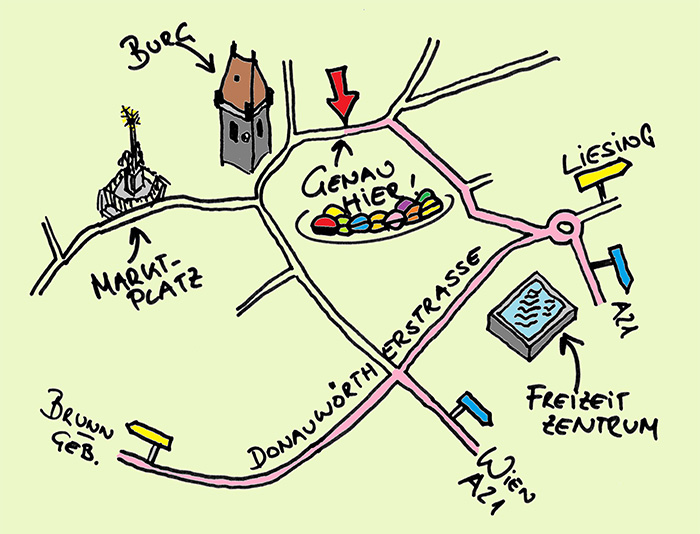 BURG
LIESING
GENAU
HIER!
MARKT-
PLATZ
A21
DONAUWÖRTHERSTRASSE
FREIZEIT
ZENTRUM
BRUNN
GEB.
WIEN
A21